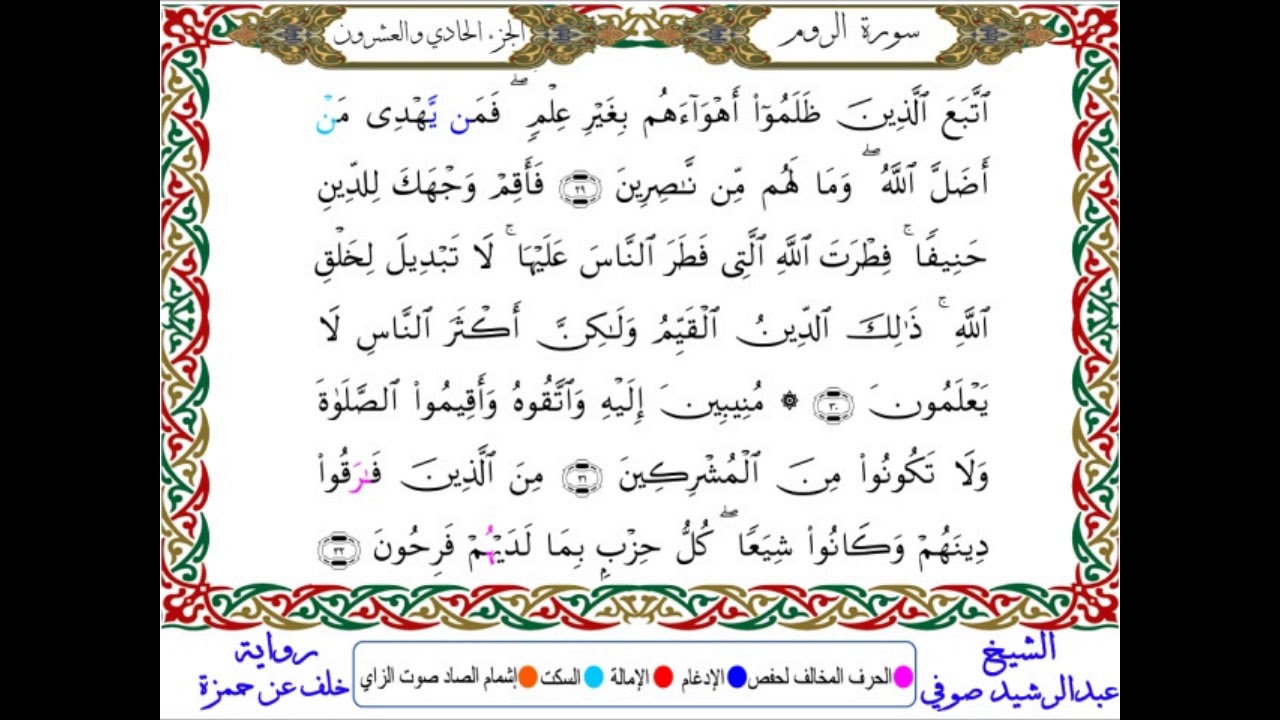 سورة الروم
الجزء الحادي والعشرون
ٱتَّبَعَ ٱلَّذِينَ ظَلَمُوٓاْ أَهْوَآءَهُم بِغَيْرِ عِلْمٍۖ فَمَن يَّهْدِى مَنْ
أَضَلَّ ٱللَّهُۖ وَمَا لَهُم مِّن نَّٰصِرِينَ ٢٩ فَأَقِمْ وَجْهَكَ لِلدِّينِ
حَنِيفًاۚ فِطْرَتَ ٱللَّهِ ٱلَّتِى فَطَرَ ٱلنَّاسَ عَلَيْهَاۚ لَا تَبْدِيلَ لِخَلْقِ
ٱللَّهِۚ ذَٰلِكَ ٱلدِّينُ ٱلْقَيِّمُ وَلَٰكِنَّ أَكْثَرَ ٱلنَّاسِ لَا
يَعْلَمُونَ ٣٠ ۞ مُنِيبِينَ إِلَيْهِ وَٱتَّقُوهُ وَأَقِيمُواْ ٱلصَّلَوٰةَ
وَلَا تَكُونُواْ مِنَ ٱلْمُشْرِكِينَ ٣١ مِنَ ٱلَّذِينَ فَٰرَقُواْ
دِينَهُمْ وَكَانُواْ شِيَعًاۖ كُلُّ حِزْبٍۭ بِمَا لَدَيْهُمْ فَرِحُونَ ٣٢
الشيخ
عبدالرشيد صوفي
الحرف المخالف لحفص الإدغام الإمالة السكت إشمام الصاد صوت الزاي
رواية
خلف عن حمزة